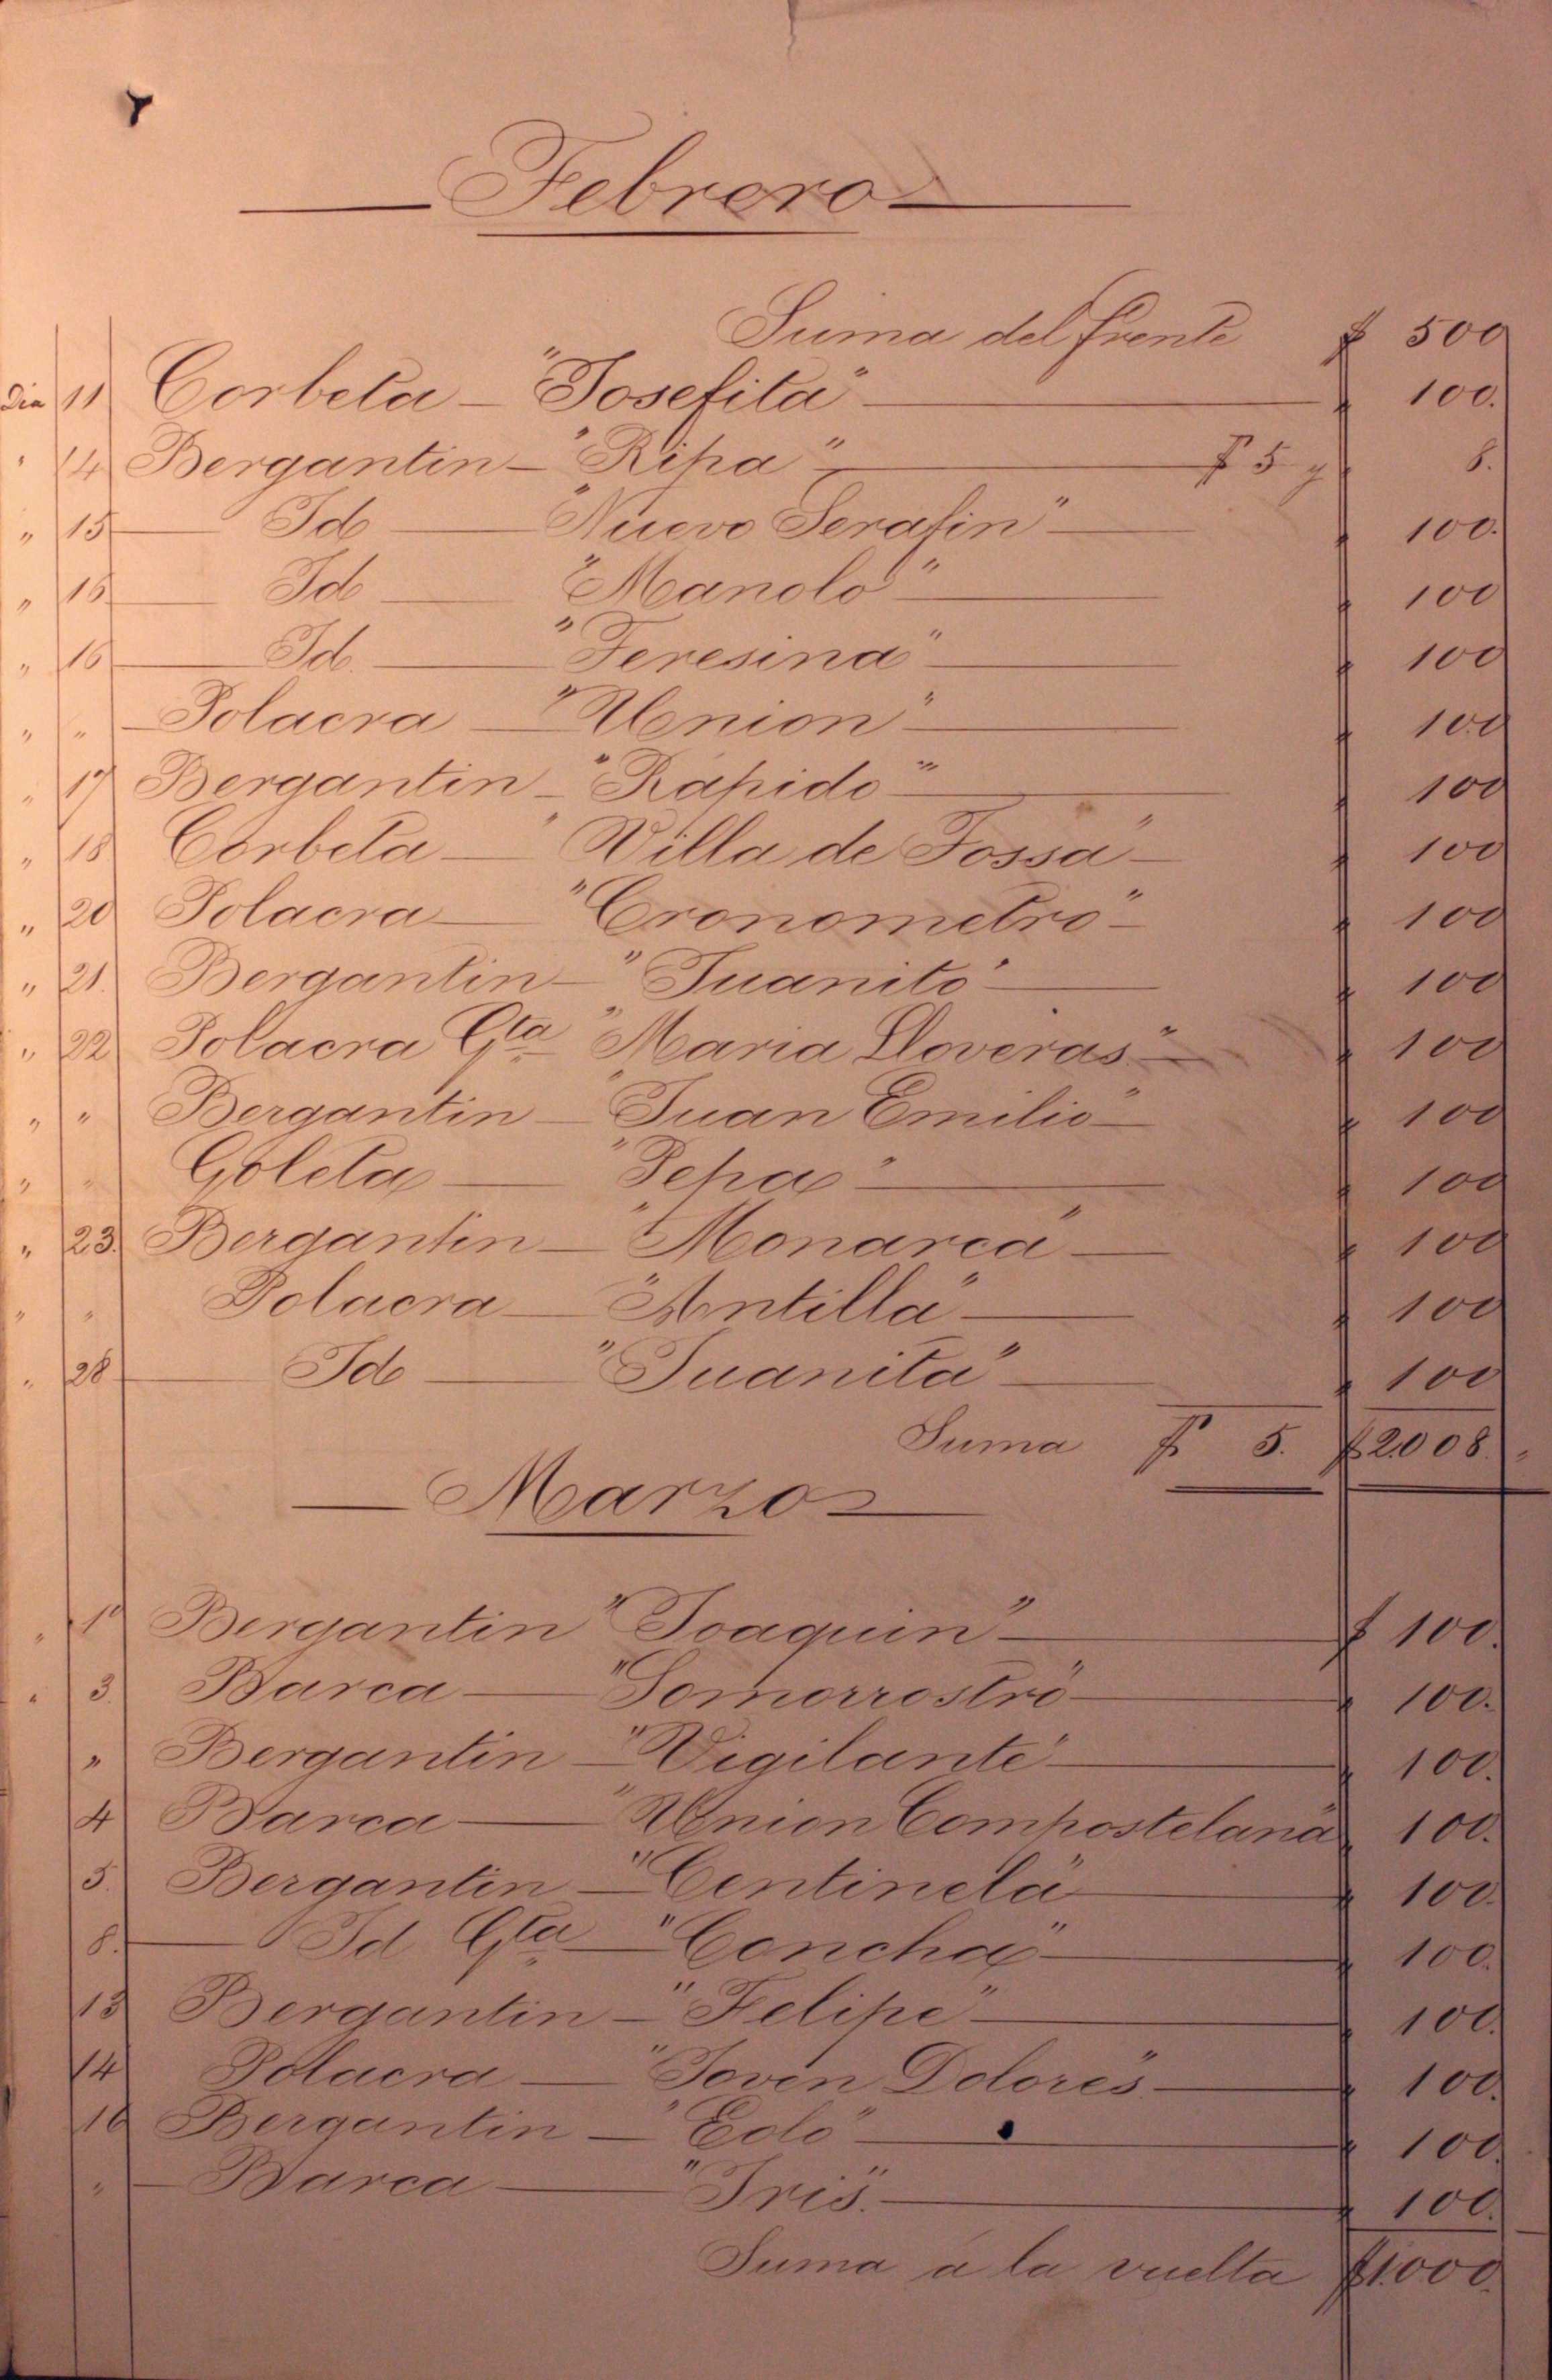 Febrero
Suma del frente $ 500
Dia 11 Corbeta — "Josefita" — " 100.
" 14 Bergantin — "Ripa" — $ 5 y " 8.
" 15 — Id — "Nuevo Serafin" — " 100.
" 16 — Id — "Manolo" — " 100
" 16 — Id. — "Teresina" — " 100
" " — Polacra — "Union" — " 100
" 17 Bergantin — "Rápido" — " 100
" 18 Corbeta — "Villa de Tossa" — " 100
" 20 Polacra — "Cronometro" — " 100
" 21. Bergantin — "Juanito" — " 100
" 22 Polacra Gta "Maria Lloveras." — " 100
" " Bergantin — "Juan Emilio" — " 100
" " Goleta — "Pepa" — " 100
" 23. Bergantin — "Monarca" — " 100
" " Polacra — "Antilla" — " 100
" 28 — Id — "Juanita" — " 100
Suma $ 5. $2.008.
— Marzo —
" 1º Bergantin "Joaquin" — $ 100.
" 3. Barca — "Somorrostro" — " 100.
" Bergantin — "Vigilante" — " 100.
4 Barca — "Union Compostelana" " 100.
5. Bergantin — "Centinela" — " 100.
8. — Id Gta — "Concha" — " 100.
13 Bergantin — "Felipe" — " 100.
14 Polacra — "Joven Dolores" — " 100.
16 Bergantin — "Eolo" — " 100.
" — Barca — "Iris". — " 100.
Suma á la vuelta $1.000.